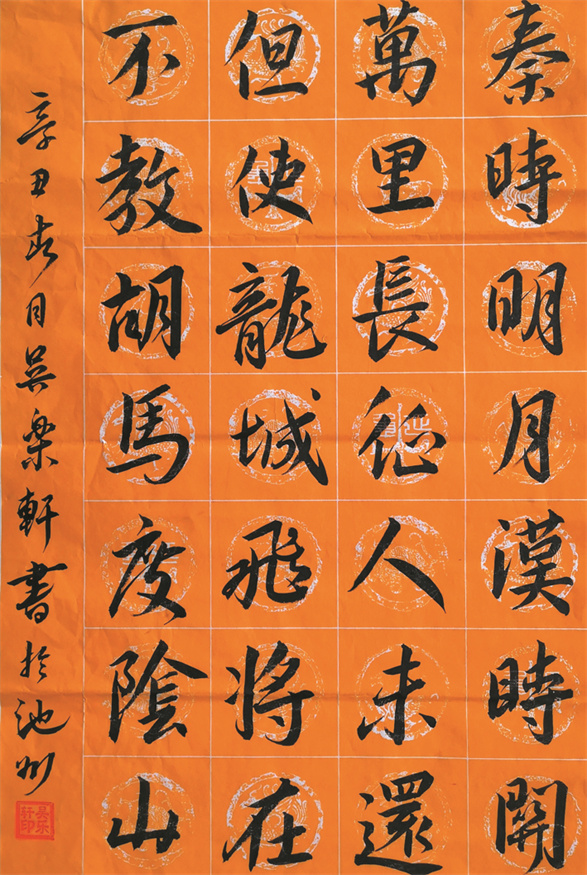 秦時明月漢時關
萬里長征人未還
但使龍城飛將在
不教胡馬度陰山
辛丑春月吳樂軒書於池州
吴乐轩印